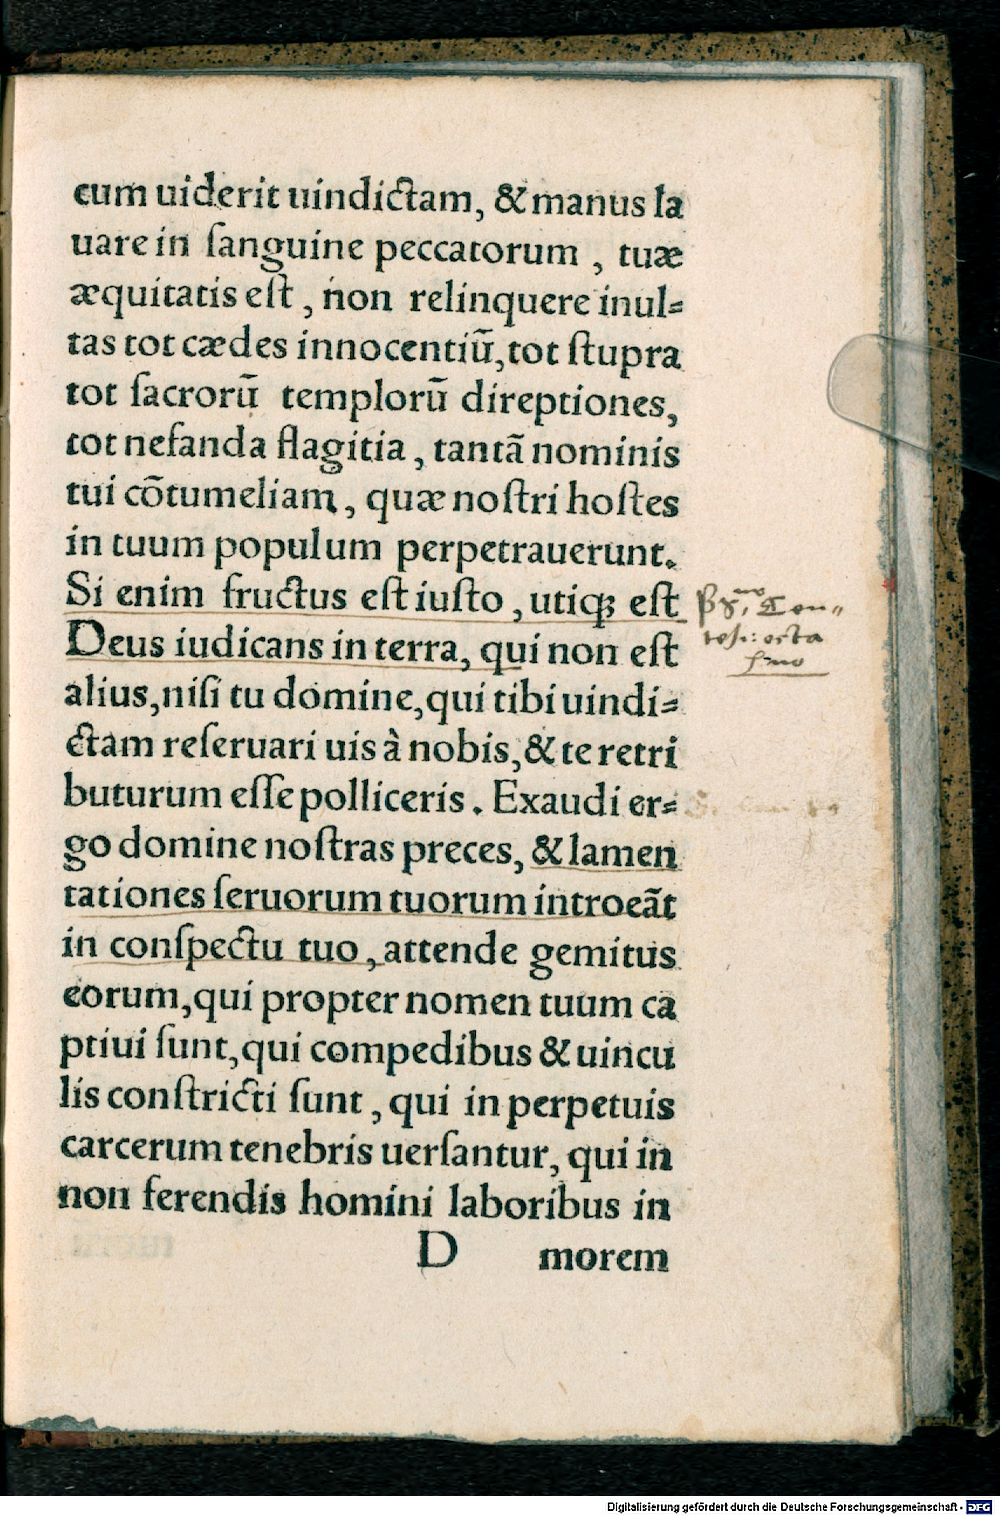 cum uiderit uindictam, & manus la
uare in ſanguine peccatorum , tuæ
æquitatis eſt , non relinquere inul⸗
tas tot cædes innocentiū, tot ſtupra
tot ſacrorū templorū direptiones,
tot nefanda flagitia , tantā nominis
tui cōtumeliam , quæ noſtri hoſtes
in tuum populum perpetrauerunt.
Si enim fructus eſt iuſto , utiqꝫ eſt
Deus iudicans in terra, qui non eſt
alius, niſi tu domine, qui tibi uindi⸗
ctam reſeruari uis à nobis, & te retri
buturum eſſe polliceris . Exaudi er⸗
go domine noſtras preces, & lamen
tationes ſeruorum tuorum introeāt
in conſpectu tuo , attende gemitus
eorum, qui propter nomen tuum ca
ptiui ſunt, qui compedibus & uincu
lis conſtricti ſunt , qui in perpetuis
carcerum tenebris uerſantur, qui in
non ferendis homini laboribus in
D morem
Digitalisierung gefördert durch die Deutsche Forschungsgemeinschaft - DFG